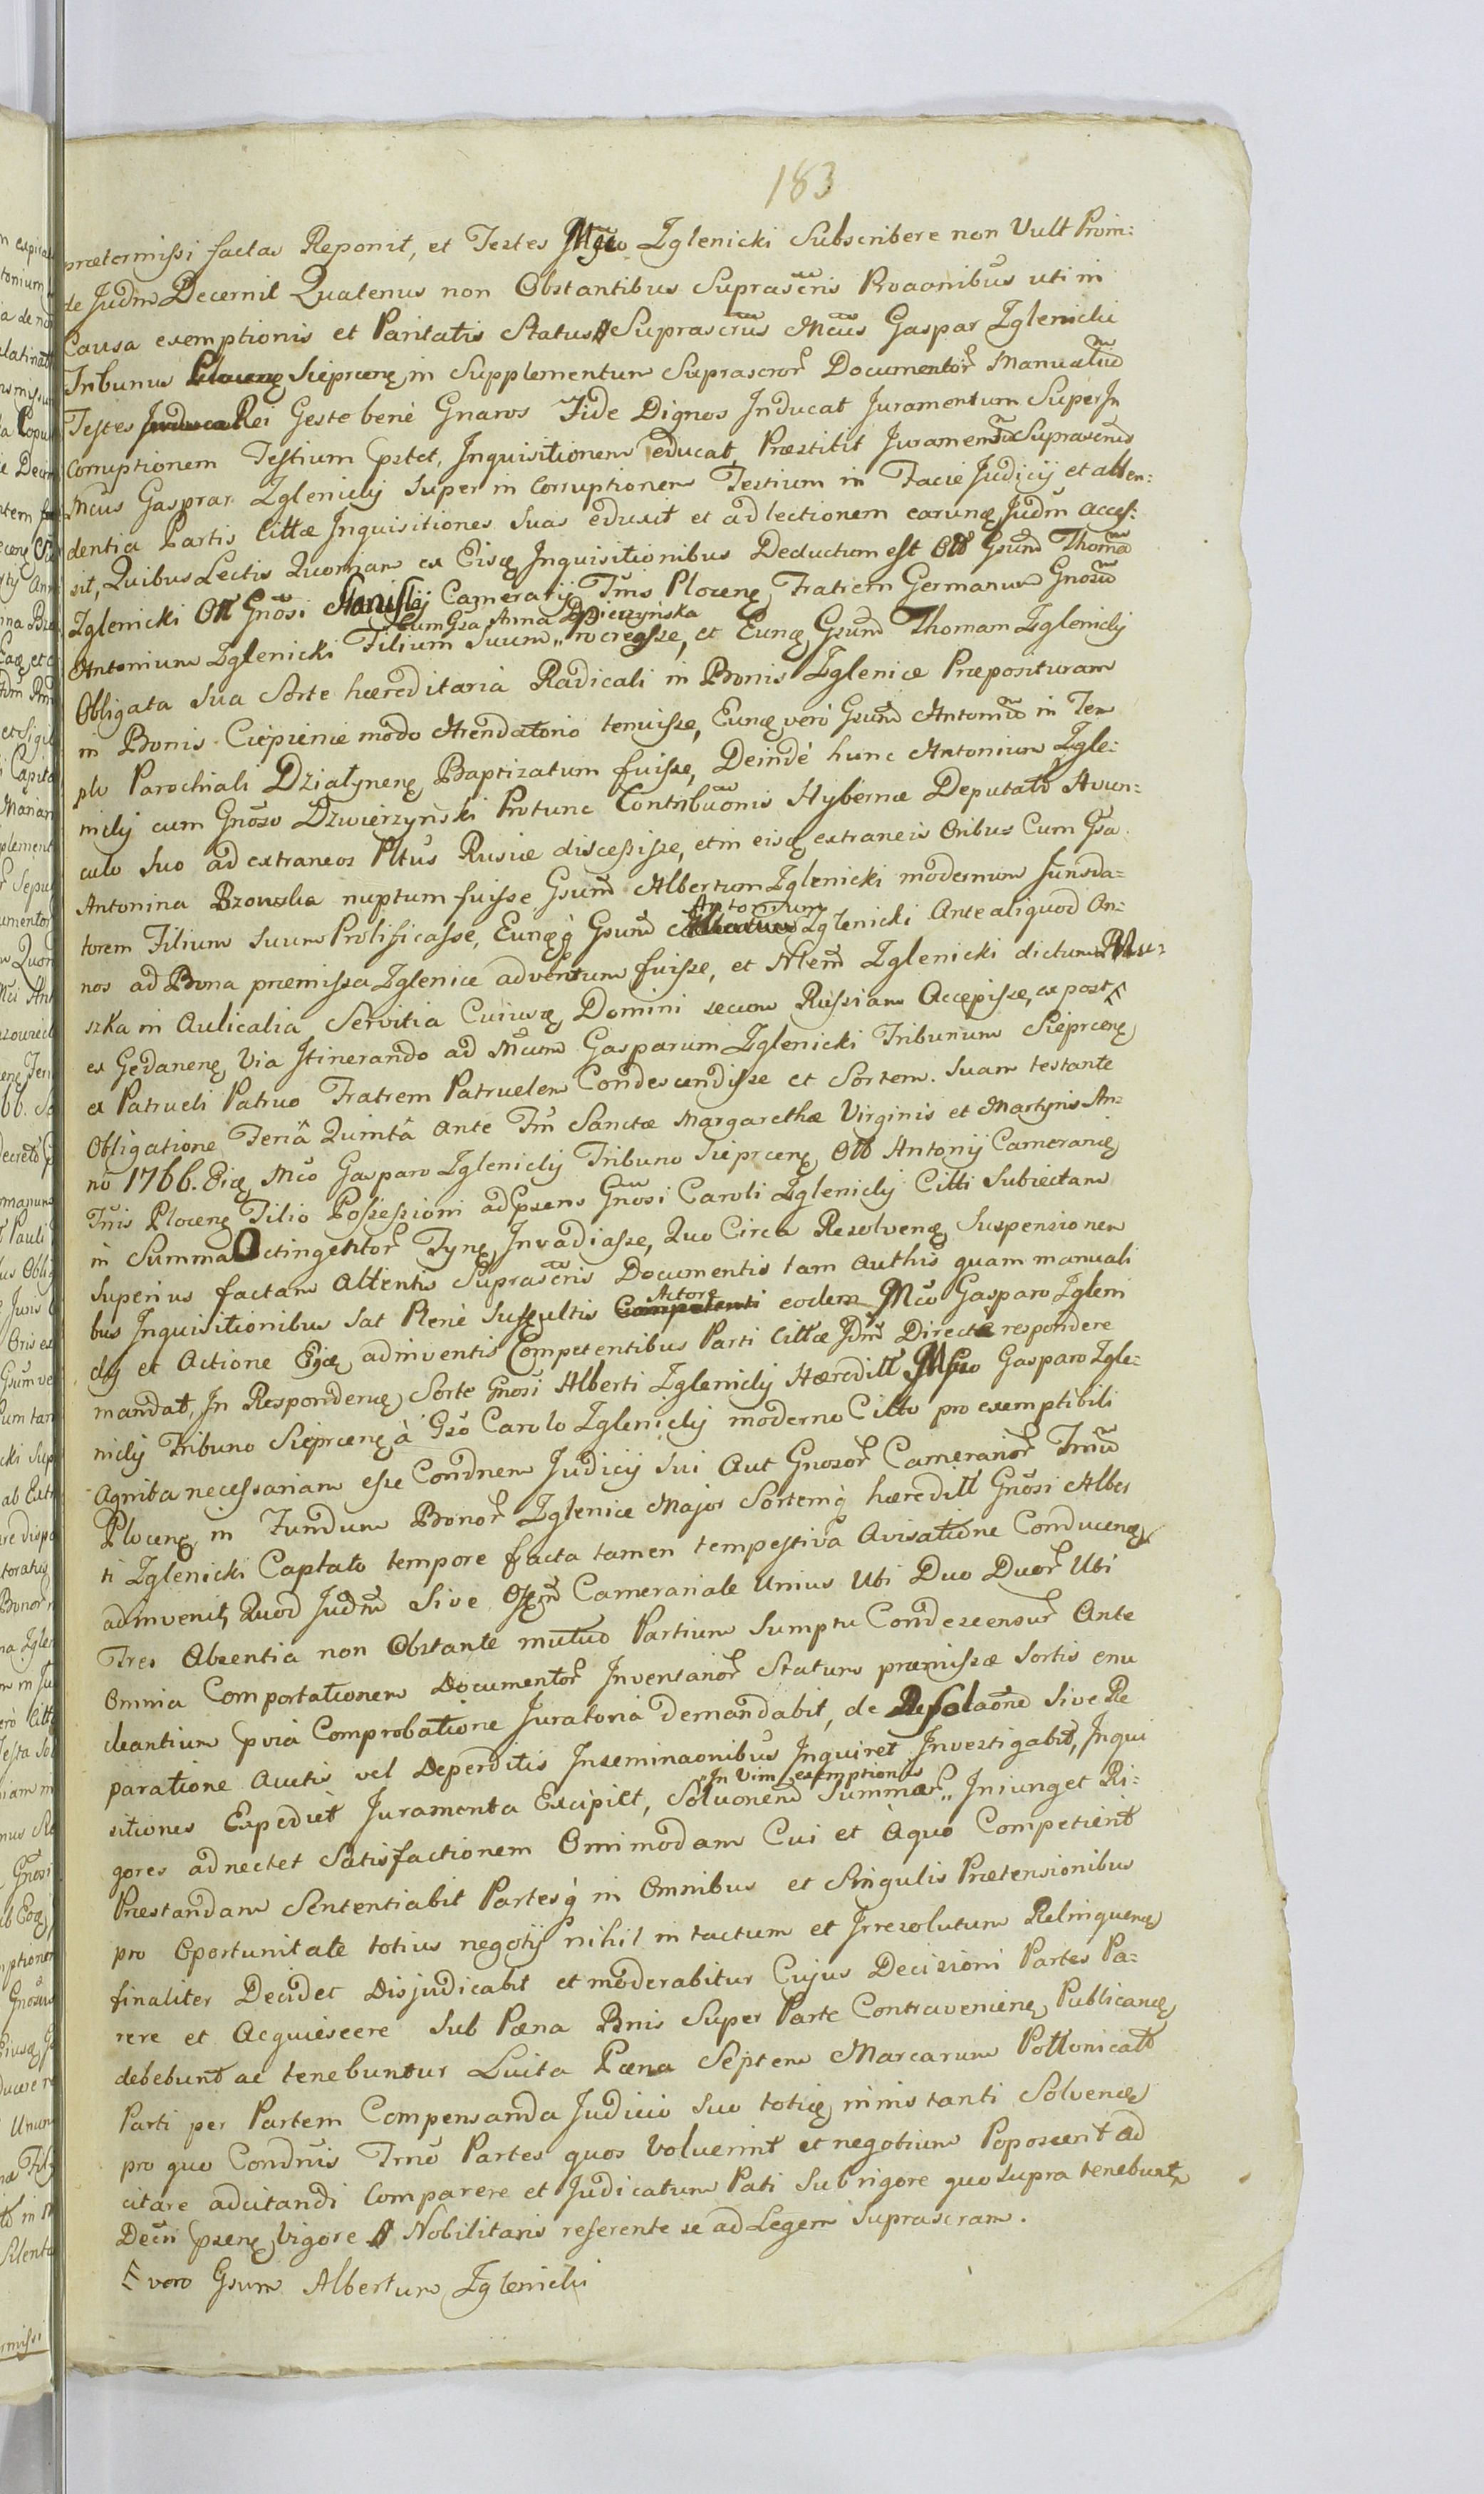 183
prætermissi factas Reponit, et Testes Mfco Zglenicki Subscribere non Vult Proin:
de Judm Decernit Quatenus non Obstantibus Suprascris Rōaonibus uti in
Causa exemptionis et Paritatis Status Suprascrūs Mcūs Gaspar Zglenicki
Tribunus Sieprceng in Supplementum Suprascror Documentor Manualiū
Testes Rei Geste bene Gnaros Fide Dignos Inducat Juramentum Super In
Corruptionem Testium pstet, Inquisitionem educat, Præstitit Juramentū Suprascrūs
Mcūs Gasprar Zglenicky super in Corruptionem Testium in Facie Judicij et atten:
dentia Partis Cittæ Inquisitiones suas eduxit et ad lectionem earung Judm acces:
sit, Quibus Lectis Quoniam ex Eisg Inquisitionibus Deductum est Olt Gsum Thomā
Zglenicki Olt Gnōsi Stanisly Camerarij Tris Ploceng Fratrem Germanum Gnosū
cum Gsa Anna Dzwierzynska
Antonium Zglenicki Filium Suum „ procreasse, et Eung Gsum Thomam Zglenicky
Obligata sua Sorte hæreditaria Radicali in Bonis Zglenice Præposituram
in Bonis Ciepienie modo Arendatorio tenuisse, Eung vero Gsum Antoniū in Tem
plo Parochiali Dzialyneng Baptizatum fuisse, Deinde hunc Antonium Zgle:
nicky cum Gnōso Dzwierzynski Protunc Contribuōnis Hybernæ Deputato Avun:
culo suo ad extraneos Pltus Rusiæ discessisse, et in eisg extraneis Oribus Cum Gsa
Antonina Bzowska nuptum fuisse Gsum Albertum Zglenicki modernum funda=
Antonium
torem Filium suum Prolificasse, Eungq Gsum Zglenicki Ante aliquod An:
nos ad Bona præmissa Zglenice adventum fuisse, et Alem Zglenicki dictum
szka in Aulicalia Servitia Cuiusg Domini secum Russiam Accepisse, ex post
ex Gedaneng Via Itinerando ad Mcum Gasparum Zglenicki Tribunum Sieprceng
ex Patrueli Patruo Fratrem Patruelem Condescendisse et Sortem suam testante
Obligatione Feriâ Quintâ ante Fm Sanctæ Margarethæ Virginis et Martyris An:
no 1766. Eig Mco Gasparo Zglenicky Tribuno Sieprceng Olt Antonij Camerarig
Tris Ploceng Filio Possessioni ad psens Gnōsi Caroli Zglenicky Citti Subiectam
in Summa Octingentor Tyng Invadiasse, Quo Circa Resolveng Suspensionem
Superius factam Attentis Suprascris Documentis tam Authis quam manuali
Actore
bus Inquisitionibus Sat Plene Suffultis Competenti eodem Mco Gasparo Zgleni
cky et Actione Eigg adinventis Competentibus Parti Cittæ Jdm Directe respondere
mandat, In Respondeng Sorte Gnosi Alberti Zglenicky Hæreditt Mfco Gasparo Zgle:
nicky Tribuno Sieprceng à Gso Carolo Zglenicky moderno Citto pro exemptibili
Agnita necessariam esse Condnem Judicij sui Aut Gnosor Camerarior Trriū
Ploceng in Fundum Bonor Zglenice Major Sortemq hæreditt Gnōsi Alber
ti Zglenicki Captato tempore facta tamen tempestiva Avisatione Conduceng
adinvenit, Quod Judm Sive Offm Camerariale Unius Ubi Duo Duor Ubi
Tres Absentia non Obstante mutuo Partium Sumptu Condescensur Ante
Omnia Comportationem Documentor Inventarior Statum præmissæ Sortis enu
cleantium pvia Comprobatione Juratoria demandabit, de Desolaōne Sive Re
paratione Auctis vel Deperditis Inseminaonibus Inquiret Investigabit, Inqui
„ In Vim exemptionis
sitiones Expediet Juramenta Excipiet, Solvonem Summæ „ Iniunget Ri:
gores adnectet Satisfactionem Omimodam Cui et Aquo Competierit
Præstandam Sententiabit Partesq in Omnibus et Singulis Prætensionibus
pro Oportunitate totius negotij nihil intactum et Irresolutum Relinqueng
finaliter Decidet Disjudicabit et moderabitur Cujus Decisioni Partes Pa:
rere et Acquiescere Sub Pæna Bnis Super Parte Contravenieng Publicang
debebunt ac tenebuntur Luita Pæna Septem Marcarum Pottonicalt
Parti per Partem Compensanda Judicio suo totieg ininstanti Solveng
pro quo Condnis Trno Partes quos Voluerint et negotium Poposcerit ad
citare adcitandi Comparere et Judicatum Pati Sub rigore quo supra tenebuntr
Decri pseng Vigore Nobilitaris referente se ad Legem Suprascram.
vero Gsum Albertum Zglenicki